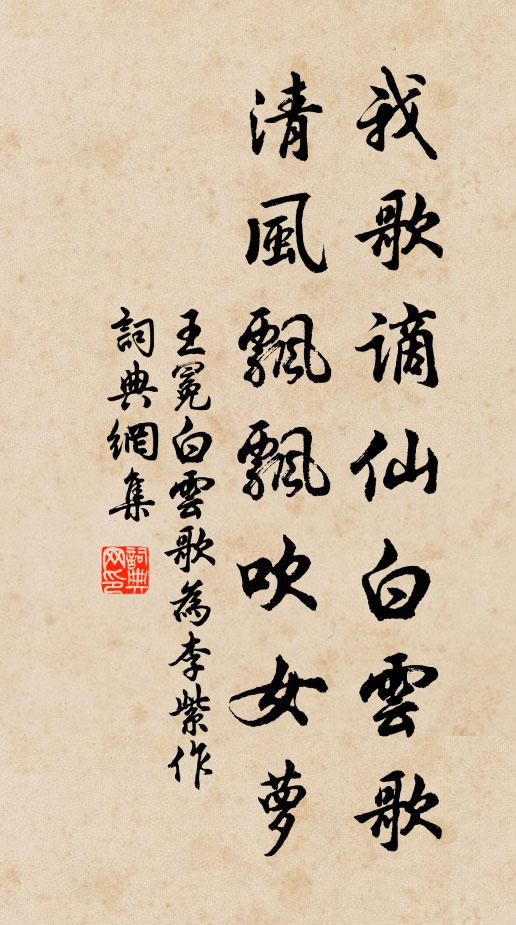 我歌謫仙白雲歌
清風飄飄吹女萝
王冕白雲歌為李紫作
詞典網集
詞典
网印